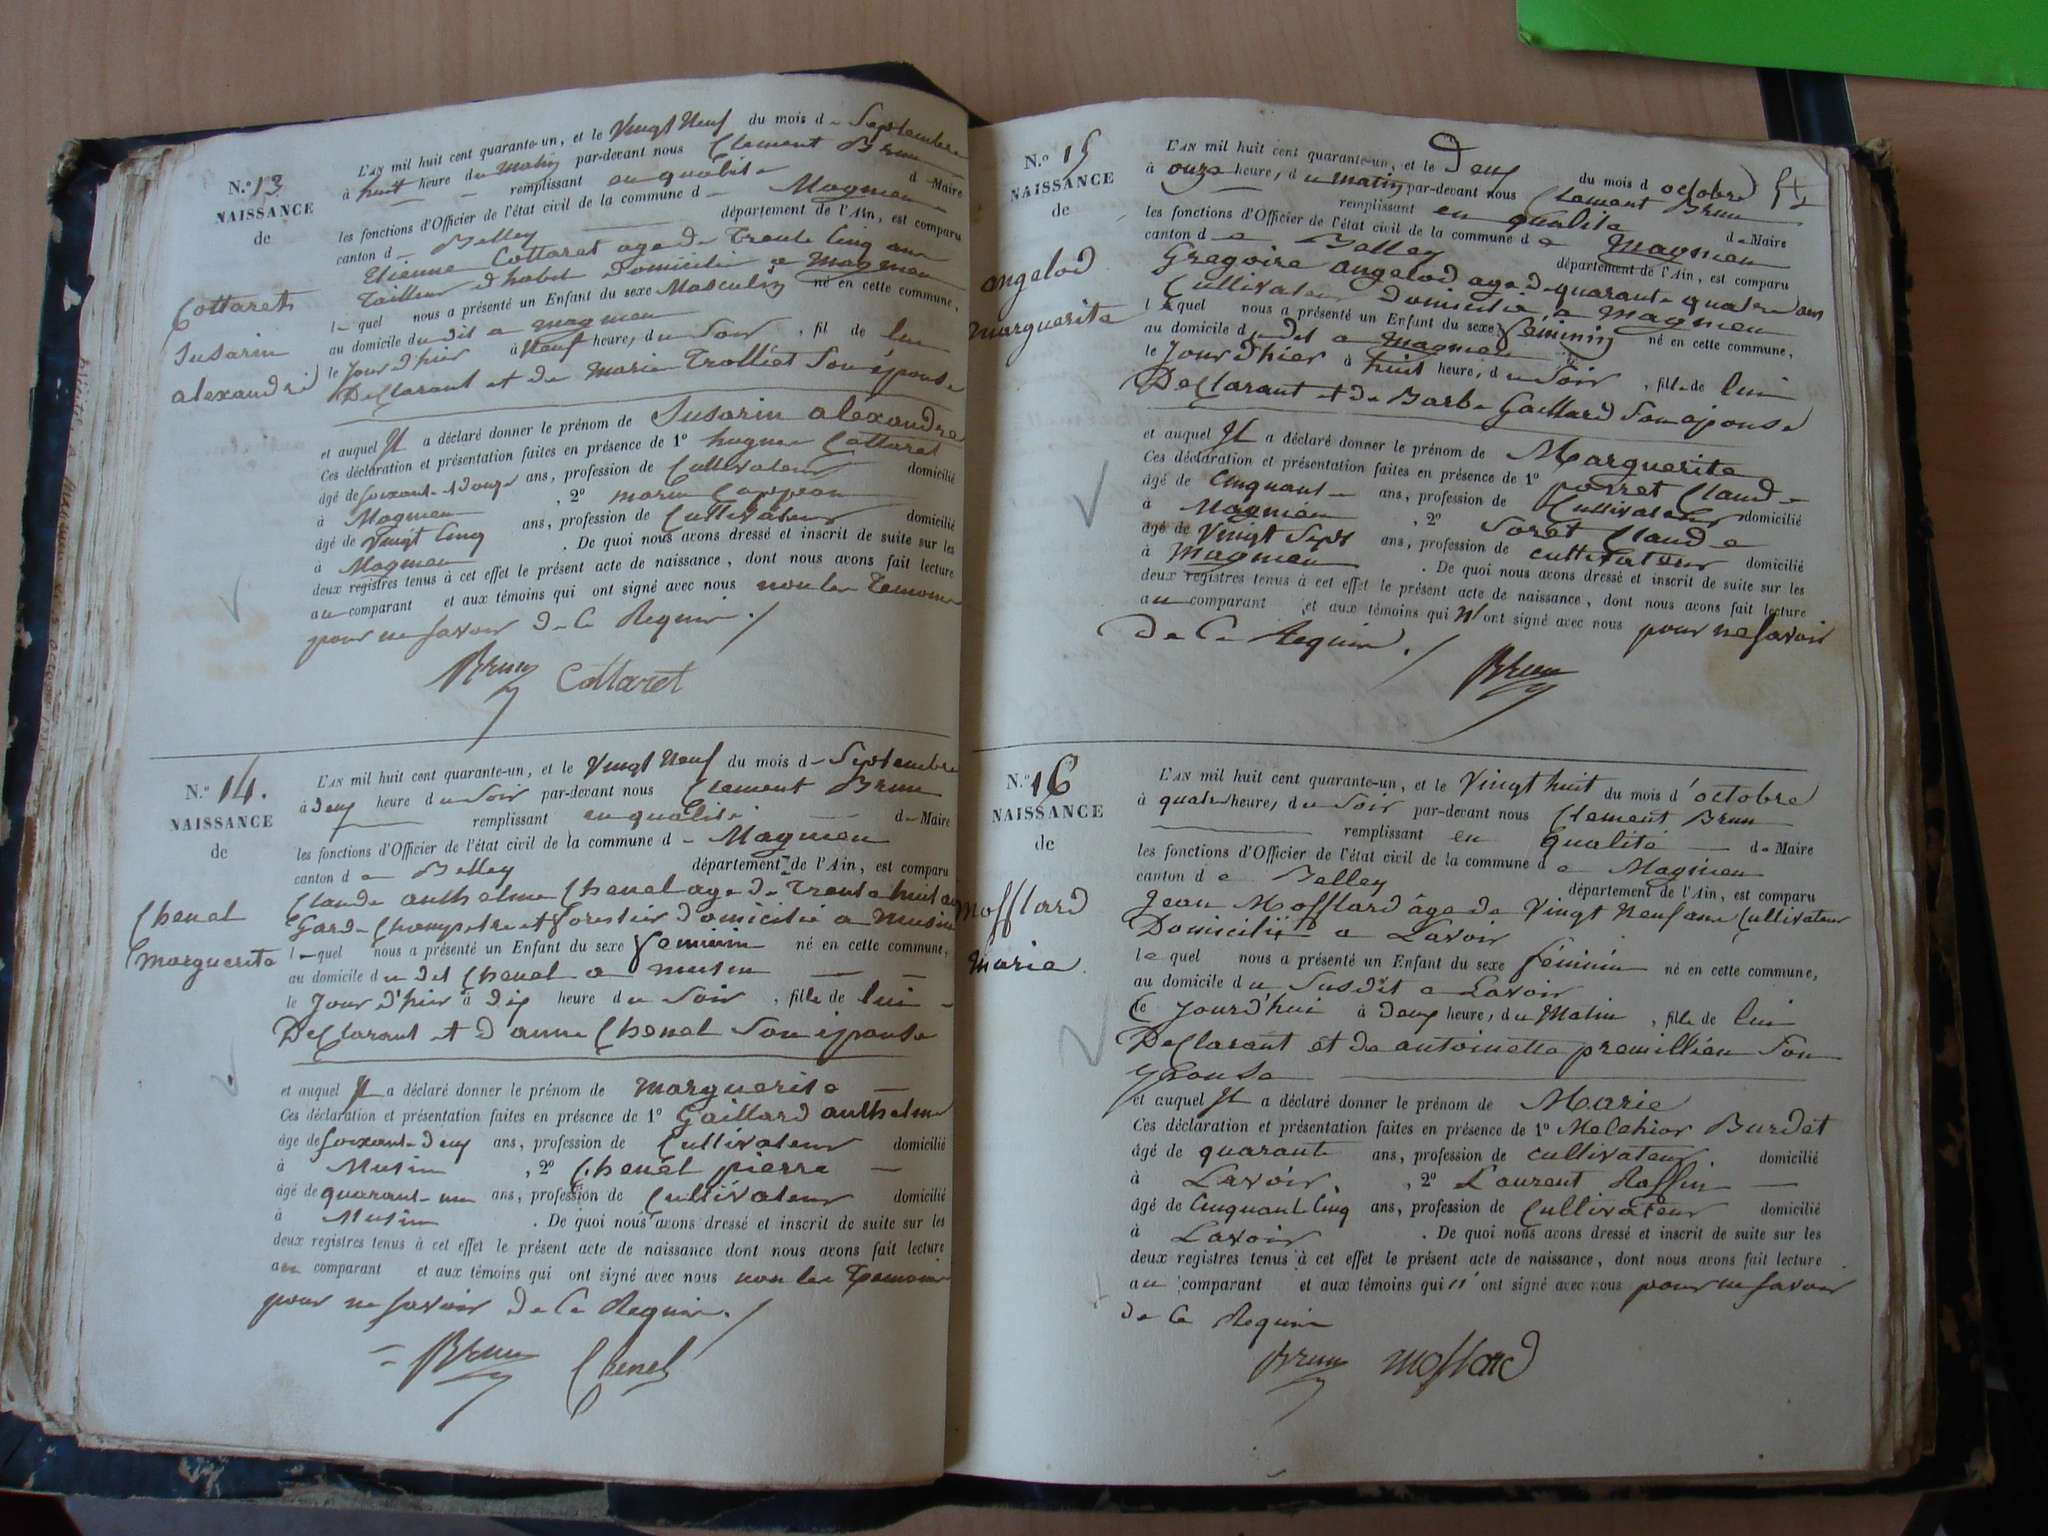 N.º 13
NAISSANCE
de
Cottaret
Susarin
alexandre
L'AN mil huit cent quarante-un, et le Vingt Neuf du mois d Septembre
à huit heure du matin par-devant nous Clement Brun
remplissant en qualité de Maire
les fonctions d'Officier de l'état civil de la commune d Magnieu
canton d Belley département de l'Ain, est comparu
Etienne Cottaret age de Trente Cinq ans
Tailleur d'habit domicilié a magnieu
le quel nous a présenté un Enfant du sexe Masculin né en cette commune,
au domicile du dit a magnieu
le Jour d'hier à Neuf heure, du Soir, fil de lui
Declarant et de marie Trolliet Son épouse
et auquel Il a déclaré donner le prénom de Susarin alexandre
Ces déclaration et présentation faites en présence de 1º hugue Cottaret
âgé de soixante douze ans, profession de Cultivateur domicilié
à Magnieu, 2º marin
âgé de Vingt Cinq ans, profession de Cultivateur domicilié
à Magnieu. De quoi nous avons dressé et inscrit de suite sur les
deux registres tenus à cet effet le présent acte de naissance, dont nous avons fait lecture
au comparant et aux témoins qui ont signé avec nous non les Temoins
pour ne savoir de Ce Requis./
Brun Cottaret
N.º 14.
NAISSANCE
de
Chenel
marguerite
L'AN mil huit cent quarante-un, et le Vingt Neuf du mois d Septembre
à deux heure du Soir par-devant nous Clement Brun
remplissant en qualité de Maire
les fonctions d'Officier de l'état civil de la commune d Magnieu
canton de Belley département de l'Ain, est comparu
Claude anthelme Chenel age de Trente huit ans
Garde Champetre et forestier domicilié a Musin
le quel nous a présenté un Enfant du sexe feminin né en cette commune,
au domicile du dit Chenel a musin
le Jour d'hier à dix heure du Soir, fille de lui
Declarant et d'anne Chenel Son épouse
et auquel Il a déclaré donner le prénom de marguerite
Ces déclaration et présentation faites en présence de 1º Gaillard anthelme
âgé de soixante deux ans, profession de Cultivateur domicilié
à Musin, 2º Chenel pierre
âgé de quarante un ans, profession de Cultivateur domicilié
à Musin. De quoi nous avons dressé et inscrit de suite sur les
deux registres tenus à cet effet le présent acte de naissance dont nous avons fait lecture
au comparant et aux témoins qui ont signé avec nous non les Temoins
pour ne savoir de Ce Requis./
Brun Chenel
N.º 15
NAISSANCE
de
angelod
marguerite
L'AN mil huit cent quarante-un, et le Deux du mois d octobre
à onze heure, du matin par-devant nous Clement Brun
remplissant en qualité de Maire
les fonctions d'Officier de l'état civil de la commune de Magnieu
canton de Belley département de l'Ain, est comparu
Gregoire angelod age de quarante quatre ans
Cultivateur domicilié a Magnieu
le quel nous a présenté un Enfant du sexe féminin né en cette commune,
au domicile du dit a Magnieu
le Jour d'hier à huit heure, du Soir, fille de lui
Declarant et de Barbe Gaillard Son epouse
et auquel Il a déclaré donner le prénom de Marguerite
Ces déclaration et présentation faites en présence de 1º Claude
âgé de Cinquante ans, profession de Cultivateur domicilié
à Magnieu, 2º Soret Claude
âgé de Vingt Sept ans, profession de cultivateur domicilié
à Magnieu. De quoi nous avons dressé et inscrit de suite sur les
deux registres tenus à cet effet le présent acte de naissance, dont nous avons fait lecture
au comparant et aux témoins qui n'ont signé avec nous pour ne savoir
de Ce Requis./
Brun
N.º 16
NAISSANCE
de
Mofflard
Marie
L'AN mil huit cent quarante-un, et le Vingt huit du mois d'octobre
à quatre heure, du Soir par-devant nous Clement Brun
remplissant en qualité de Maire
les fonctions d'Officier de l'état civil de la commune de Magnieu
canton de Belley département de l'Ain, est comparu
Jean Mofflard âge de Vingt Neuf ans Cultivateur
Domicilié a Lavoir
le quel nous a présenté un Enfant du sexe féminin né en cette commune,
au domicile du Susdit a Lavoir
le Jourd'hui à deux heure, du Matin, fille de lui
Declarant et de antoinette premillieu Son
Epouse
et auquel Il a déclaré donner le prénom de Marie
Ces déclaration et présentation faites en présence de 1º Melchior Burdet
âgé de quarante ans, profession de cultivateur domicilié
à Lavoir, 2º Laurent
âgé de Cinquante Cinq ans, profession de Cultivateur domicilié
à Lavoir. De quoi nous avons dressé et inscrit de suite sur les
deux registres tenus à cet effet le présent acte de naissance, dont nous avons fait lecture
au comparant et aux témoins qui n'ont signé avec nous pour ne savoir
de Ce Requis
Brun moflard